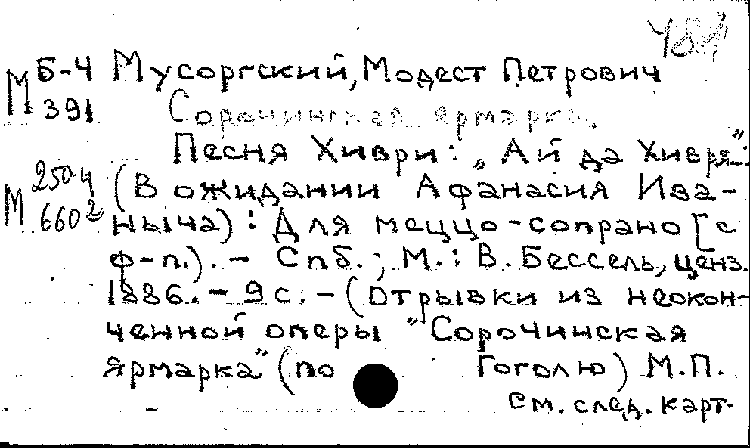 М Б-4 Мусоргский, Модест Петрович
391 Сорочинская ярмарка.
Песня Хиври: „Ай да Хивря“:
М 250 4 (В ожидании Афанасия Ива-
660 2 ныча): Для меццо-сопрано [с
ф-п.). - Спб.; М.: В. Бессель, ценз.
1886. - 9 с. - (Отрывки из неокон-
ченной оперы "Сорочинская
ярмарка" (по Гоголю) М.П.
см. след. карт.